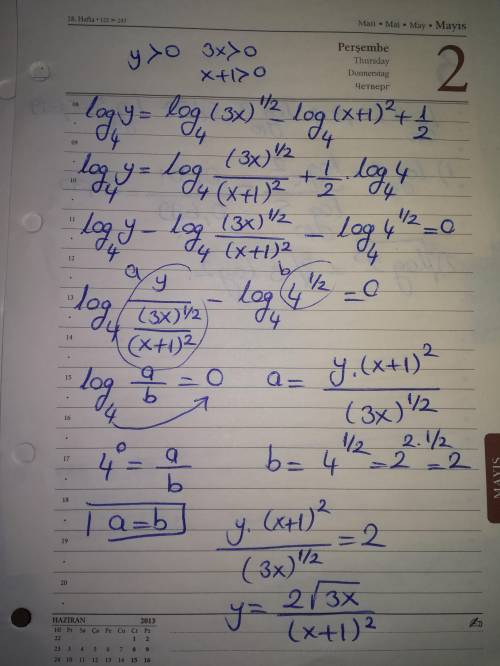 18. Hafta • 122 > 243
Mart • Mai • May • Mayıs
Perşembe
Thursday
Donnerstag
Четверг
2
y>0 3x>0
x+1>0
08
log₄ y = log₄ (3x)^1/2 - log₄ (x+1)^2 + 1/2
09
log₄ y = log₄ (3x)^1/2 / (x+1)^2 + 1/2 . log₄ 4
10
11
log₄ y - log₄ (3x)^1/2 / (x+1)^2 - log₄ 4^1/2 = 0
12
a b
13
log₄ y / ((3x)^1/2 / (x+1)^2) - log₄ 4^1/2 = 0
14
15
log₄ a/b = 0 a = y.(x+1)^2 / (3x)^1/2
16
17
4^0 = a/b b = 4^1/2 = 2^2.1/2 = 2
MAYIS
18
a=b y.(x+1)^2 / (3x)^1/2 = 2
19
20
y = 2√3x / (x+1)^2
HAZİRAN 2013
Hf Pt Sa Ça Pe Cu Ct Pz
22 1 2
23 3 4 5 6 7 8 9
24 10 11 12 13 14 15 16